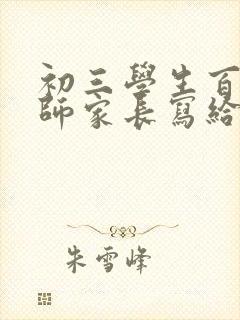 初三學生百
師家長寫給
朱雪峰